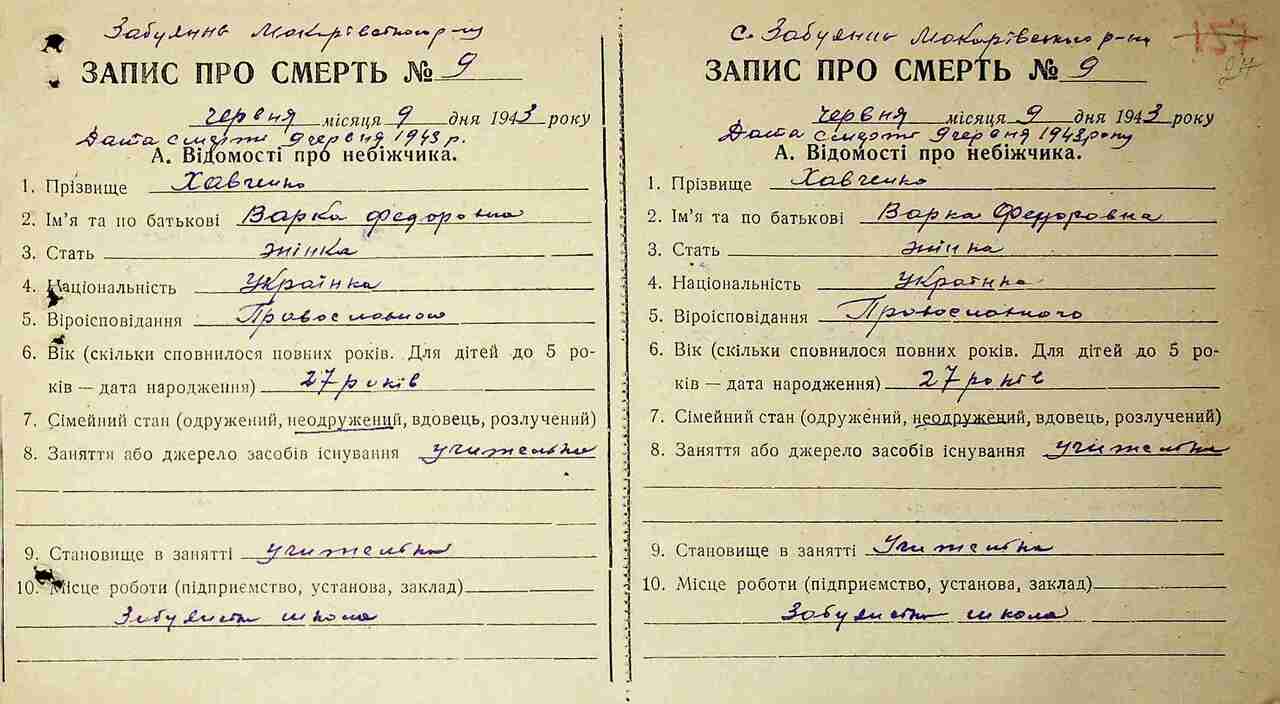 Забуяння Макарівського р-ну
ЗАПИС ПРО СМЕРТЬ № 9
червня місяця 9 дня 1943 року
Дата смерти 9 червня 1943 р.
А. Відомості про небіжчика.
1. Прізвище Хавченко
2. Ім'я та по батькові Варка Федоровна
3. Стать жінка
4. Національність Українка
5. Віроісповідання Православного
6. Вік (скільки сповнилося повних років. Для дітей до 5 ро-
ків — дата народження) 27 років
7. Сімейний стан (одружений, неодружений, вдовець, розлучений)
8. Заняття або джерело засобів існування учителька
9. Становище в занятті учителька
10. Місце роботи (підприємство, установа, заклад)
школа
с. Забуяння Макарівського р-ну
157
24
ЗАПИС ПРО СМЕРТЬ № 9
червня місяця 9 дня 1943 року
Дата смерти 9 червня 1943 року
А. Відомості про небіжчика.
1. Прізвище Хавченко
2. Ім'я та по батькові Варка Федоровна
3. Стать жінка
4. Національність Українка
5. Віроісповідання Православного
6. Вік (скільки сповнилося повних років. Для дітей до 5 ро-
ків — дата народження) 27 років
7. Сімейний стан (одружений, неодружений, вдовець, розлучений)
8. Заняття або джерело засобів існування учителька
9. Становище в занятті Учителька
10. Місце роботи (підприємство, установа, заклад)
школа